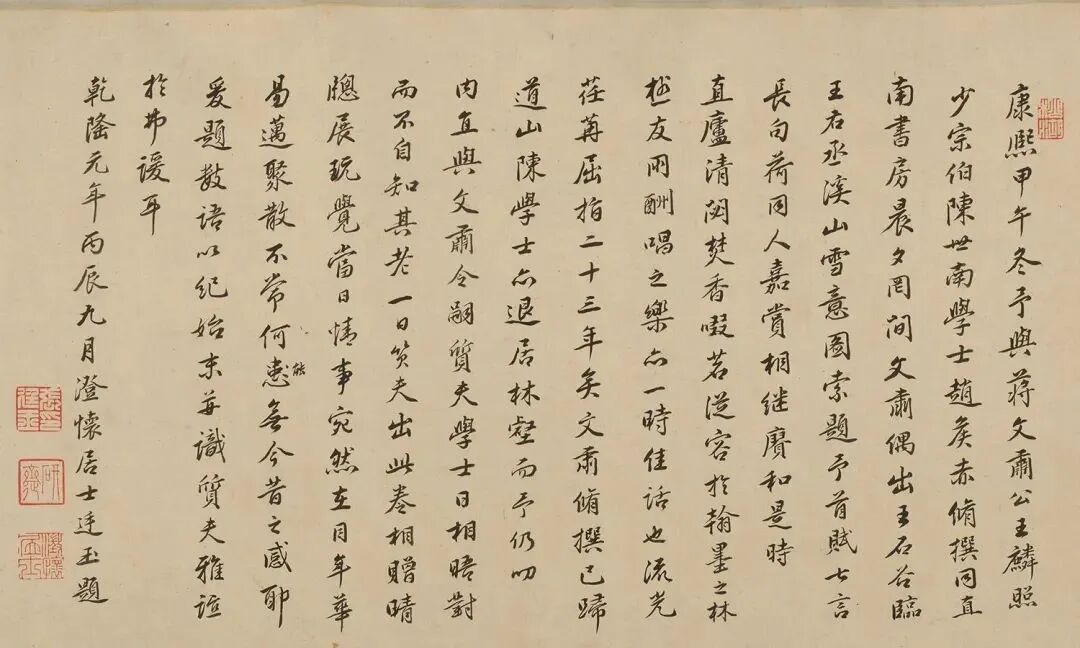 康熙甲午冬予與蔣文肅公王麟照
少宗伯陳世南學士趙矦赤脩撰同直
南書房晨夕罔間文肅偶出王石谷臨
王右丞溪山雪意圖索題予首賦七言
長句荷同人嘉賞相繼賡和是時
直廬清閟焚香啜茗從容於翰墨之林
樾友朋酬唱之樂亦一時佳話也流光
荏苒屈指二十三年矣文肅脩撰已歸
道山陳學士亦退居林壑而予仍叨
内直與文肅令嗣質夫學士日相晤對
而不自知其老一日質夫出此卷相贈晴
牕展玩覺當日情事宛然在目年華
易邁聚散不常何能無今昔之感耶
爰題數語以紀始末並識質夫雅誼
於弗諼耳
乾隆元年丙辰九月澄懷居士廷玉題
張印廷玉
研齋
澄懷居士